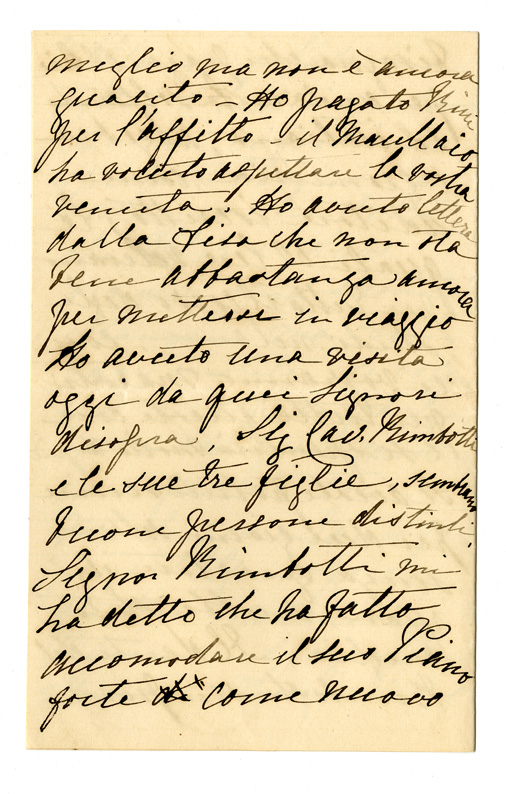 meglio ma non è ancora
guarito – Ho pagato
per l'affitto – il Macellaio
ha voluto aspettare la vostra
venuta. Ho avuto lettera
dalla Lisa che non sta
bene abbastanza ancora
per mettersi in viaggio
Ho avuto una visita
oggi da quei Signori
disopra, Sig Cav. Rimbotti
e le sue tre figlie, sembrano
buone persone distinti
Signor Rimbotti mi
ha detto che ha fatto
accomodare il suo Piano
forte come nuovo